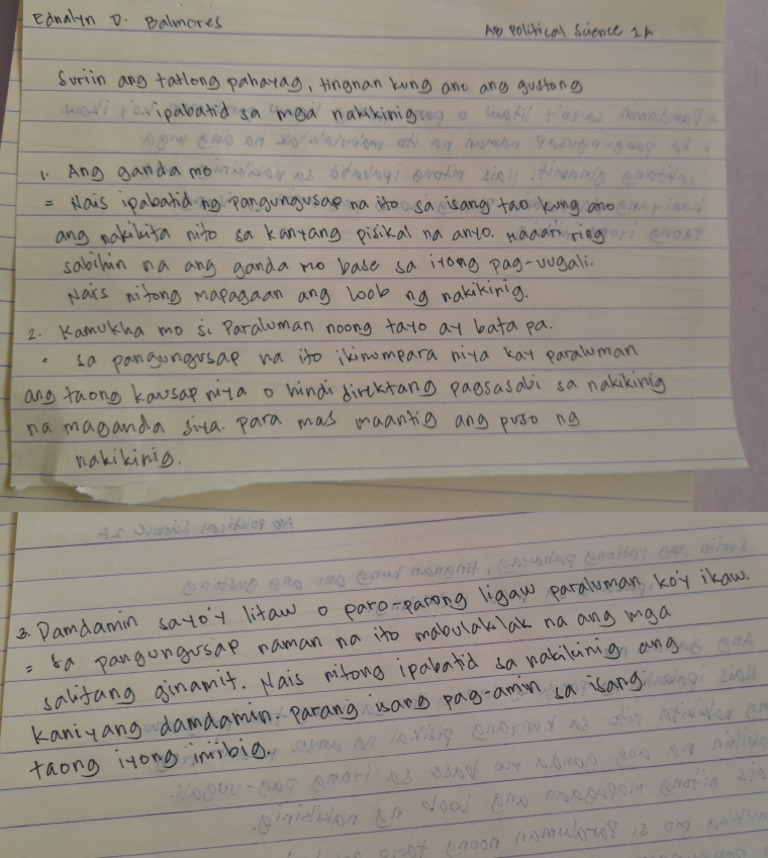 Ednalyn D. Balmores
AB Political Science 1A
Suriin ang tatlong pahayag, tingnan kung ano ang gustong
ipabatid sa mga nakikinig.
1. Ang ganda mo
= Nais ipabatid ng pangungusap na ito sa isang tao kung ano
ang nakikita nito sa kanyang pisikal na anyo. Maaari ring
sabihin na ang ganda mo base sa iyong pag-uugali.
Nais nitong mapagaan ang loob ng nakikinig.
2. Kamukha mo si Paraluman noong tayo ay bata pa.
• sa pangungusap na ito ikinumpara niya kay paraluman
ang taong kausap niya o hindi direktang pagsasabi sa nakikinig
na maganda siya. para mas maantig ang puso ng
nakikinig.
3. Damdamin sayo'y litaw o paro-parong ligaw paraluman ko'y ikaw.
= sa pangungusap naman na ito mabulaklak na ang mga
salitang ginamit. Nais nitong ipabatid sa nakikinig ang
kaniyang damdamin. parang isang pag-amin sa isang
taong iyong iniibig.